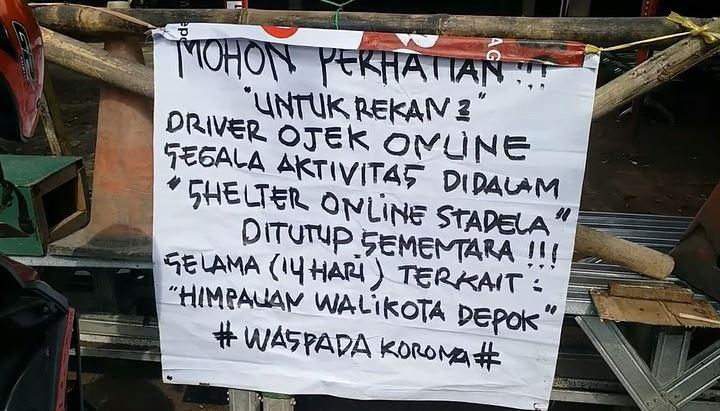 MOHON PERHATIAN !!!
"UNTUK REKAN2"
DRIVER OJEK ONLINE
SEGALA AKTIVITAS DIDALAM
"SHELTER ONLINE STADELA"
DITUTUP SEMENTARA !!!
SELAMA (14 HARI) TERKAIT :
"HIMPAUAN WALIKOTA DEPOK"
# WASPADA KORONA #